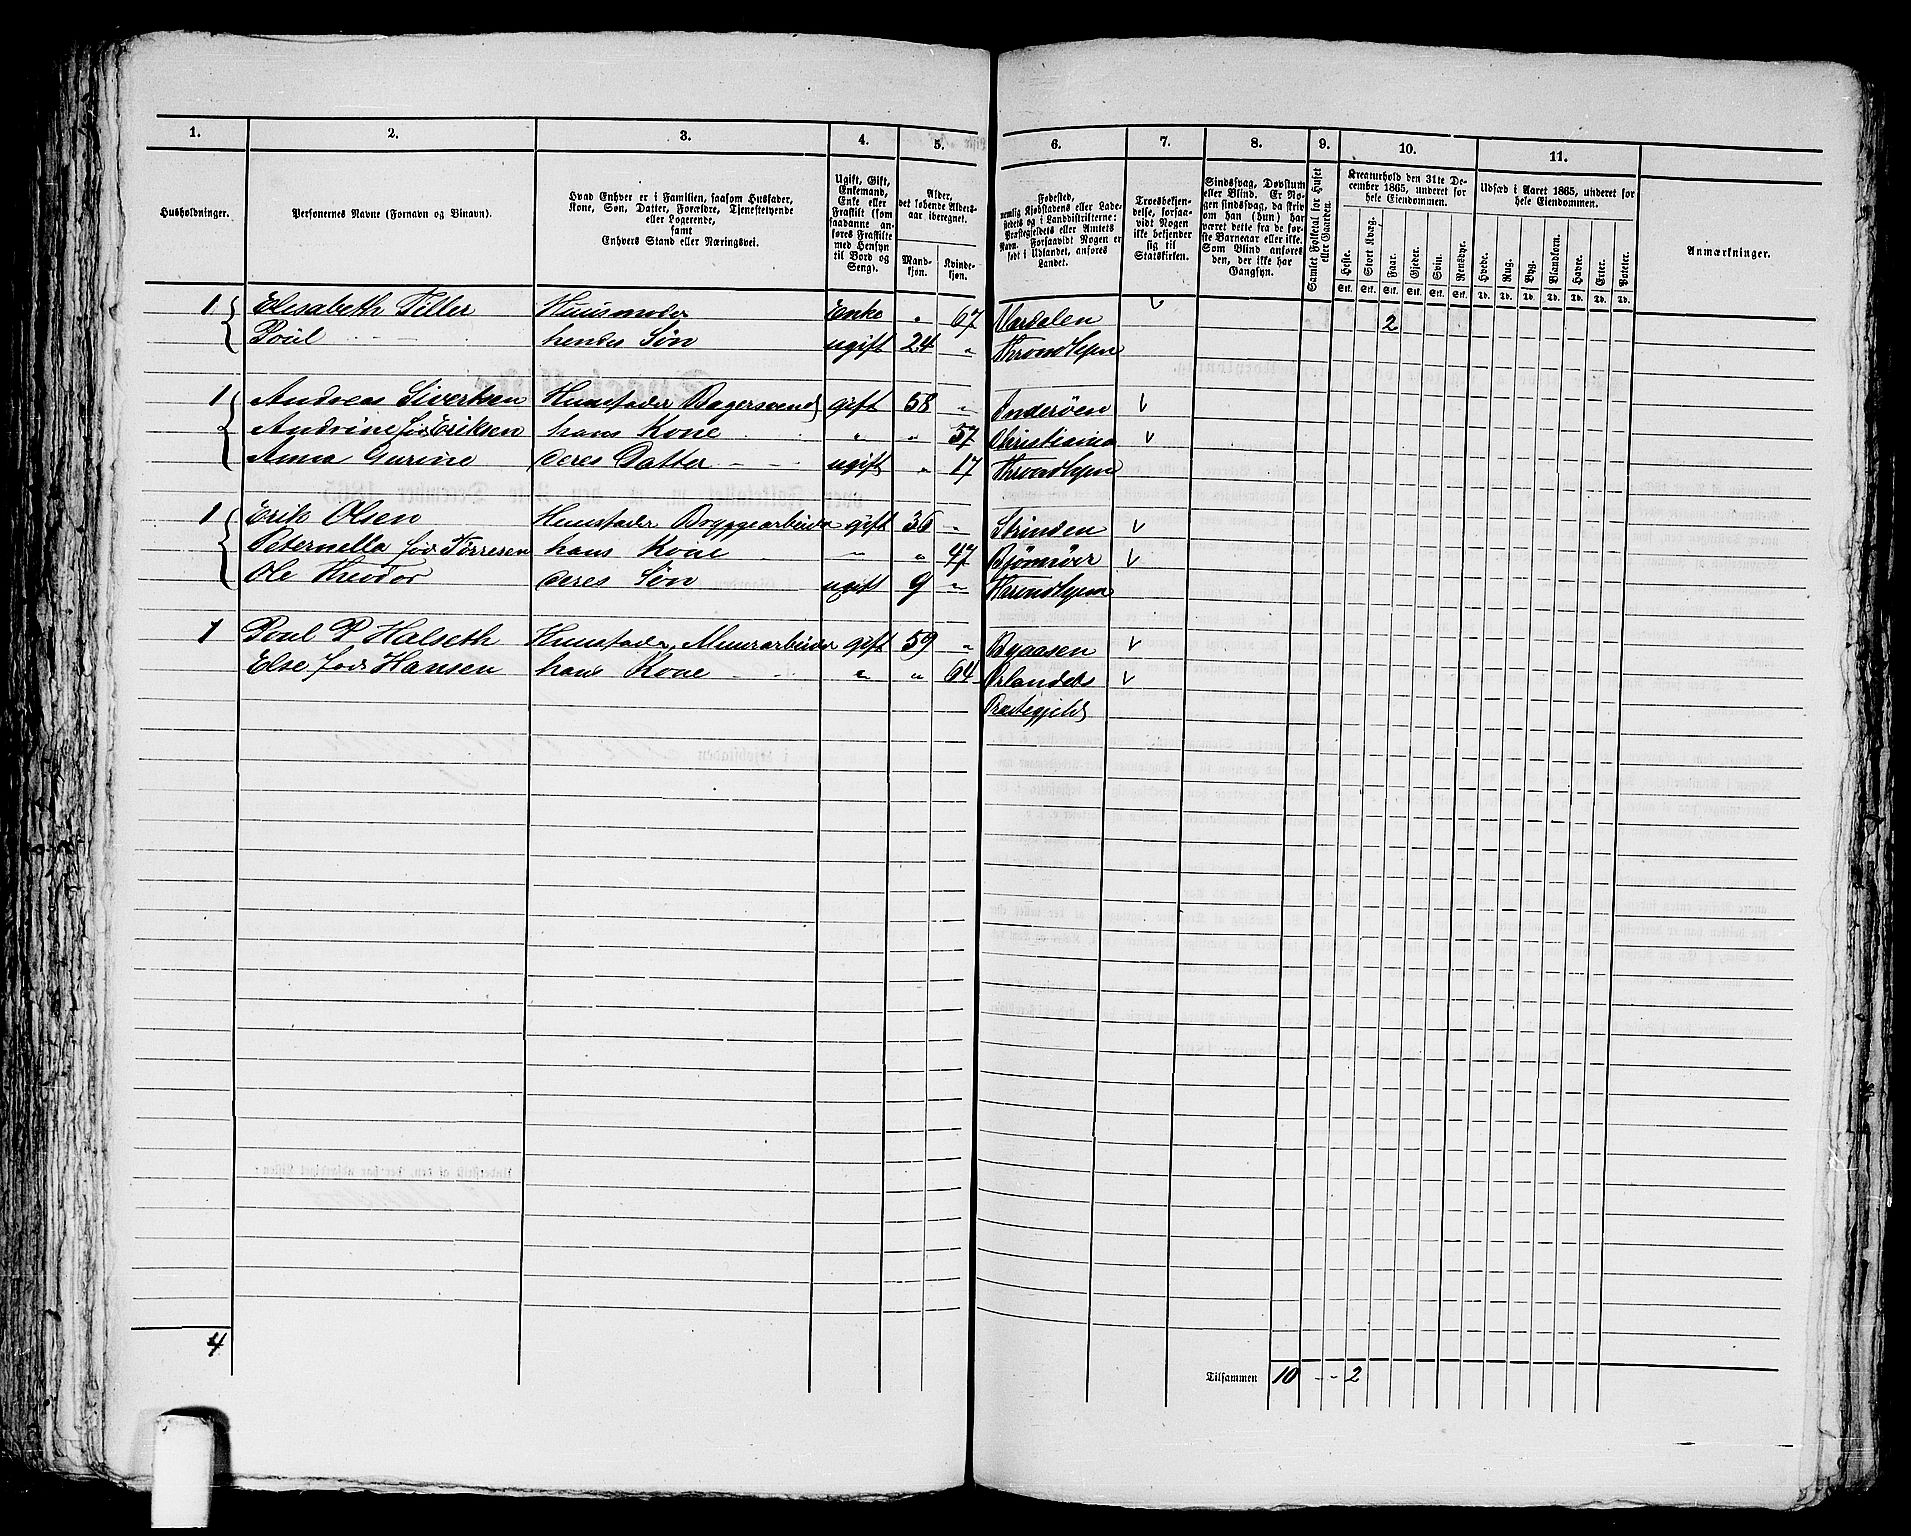 1. 2. 3. 4. 5. 6. 7. 8. 9. 10. 11.
Husholdninger.
Personernes Navne (Fornavn og Tilnavn).
Hvad Enhver er i Familien, saasom Husfader,
Kone, Søn, Datter, Forældre, Tjenestetyende
eller Logerende,
samt
Enhvers Stand eller Næringsvei.
Ugift, Gift,
Enkemand,
Enke eller
Fraskilt (som
saadanne an-
føres Fraskilte
med Hensyn
til Bord og
Seng).
Alder,
det løbende Alders-
aar iberegnet.
Mand-
kjøn.
Kvinde-
kjøn.
Fødested,
nemlig Kjøbstadens eller Lade-
stedets og i Landdistrikterne:
Præstegjeldets eller Amtets
Navn. Forsaavidt Nogen er
født i Udlandet, anføres
Landet.
Troesbekjen-
delse, forsaa-
vidt Nogen
ikke bekjender
sig til
Statskirken.
Sindssvag, Døvstum
eller Blind. Er No-
gen sindssvag, da skriv
om han (hun) har
været dette fra de før-
ste Barneaar eller ikke.
Som Blind anføres
den, der ikke har
Gangsyn.
Samlet Folketal for Huset
eller Gaarden.
Kreaturhold den 31te De-
cember 1865, underet for
hele Eiendommen.
Heste. Stort Kvæg. Faar. Gjeder. Sviin. Rensdyr.
Stk. Stk. Stk. Stk. Stk. Stk.
Udsæd i Aaret 1865, underet for
hele Eiendommen.
Hvede. Rug. Byg. Blandkorn. Havre. Erter. Poteter.
Td. Td. Td. Td. Td. Td. Td.
Anmærkninger.
1 Elisabeth Tiller Huusmoder Enke " 67 Værdalen 2
Poul hendes Søn ugift 24 " Throndhjem
1 Andreas Sivertsen Huusfader Bagersvend gift 58 " Inderøen
Andrine fød Eriksen hans Kone " " 57 Christiania
Anna Gurine deres Datter ugift " 17 Throndhjem
1 Erik Olsen Huusfader Bryggearbeider gift 36 " Strinden
Peternella fød Tørresen hans Kone " " 47 Bjørnøer
Ole Theodor deres Søn ugift 9 " Throndhjem
1 Poul P Halseth Huusfader, Muurarbeider gift 59 " Byaasen
Else fød Hansen hans Kone " " 64 Ørlandets
Præstegjeld
4
Tilsammen 10 - - 2